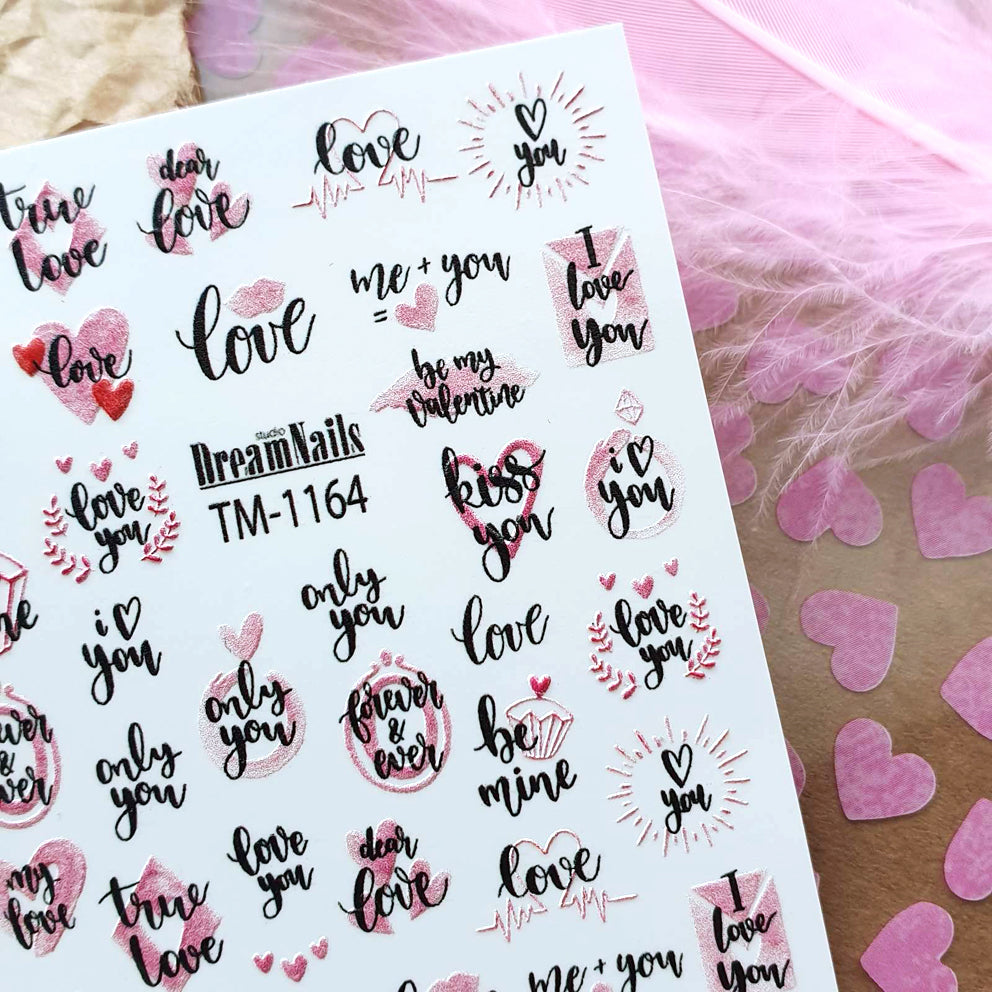 true
love
dear
love
love
you
me + you
=
I
love
you
love
love
be my
valentine
studio
DreamNails
TM-1164
kiss
you
i
you
love
you
only
you
love
love
you
i
you
only
you
forever
&
ever
be
mine
only
you
you
love
you
dear
love
love
I
love
you
my
love
true
love
me + you